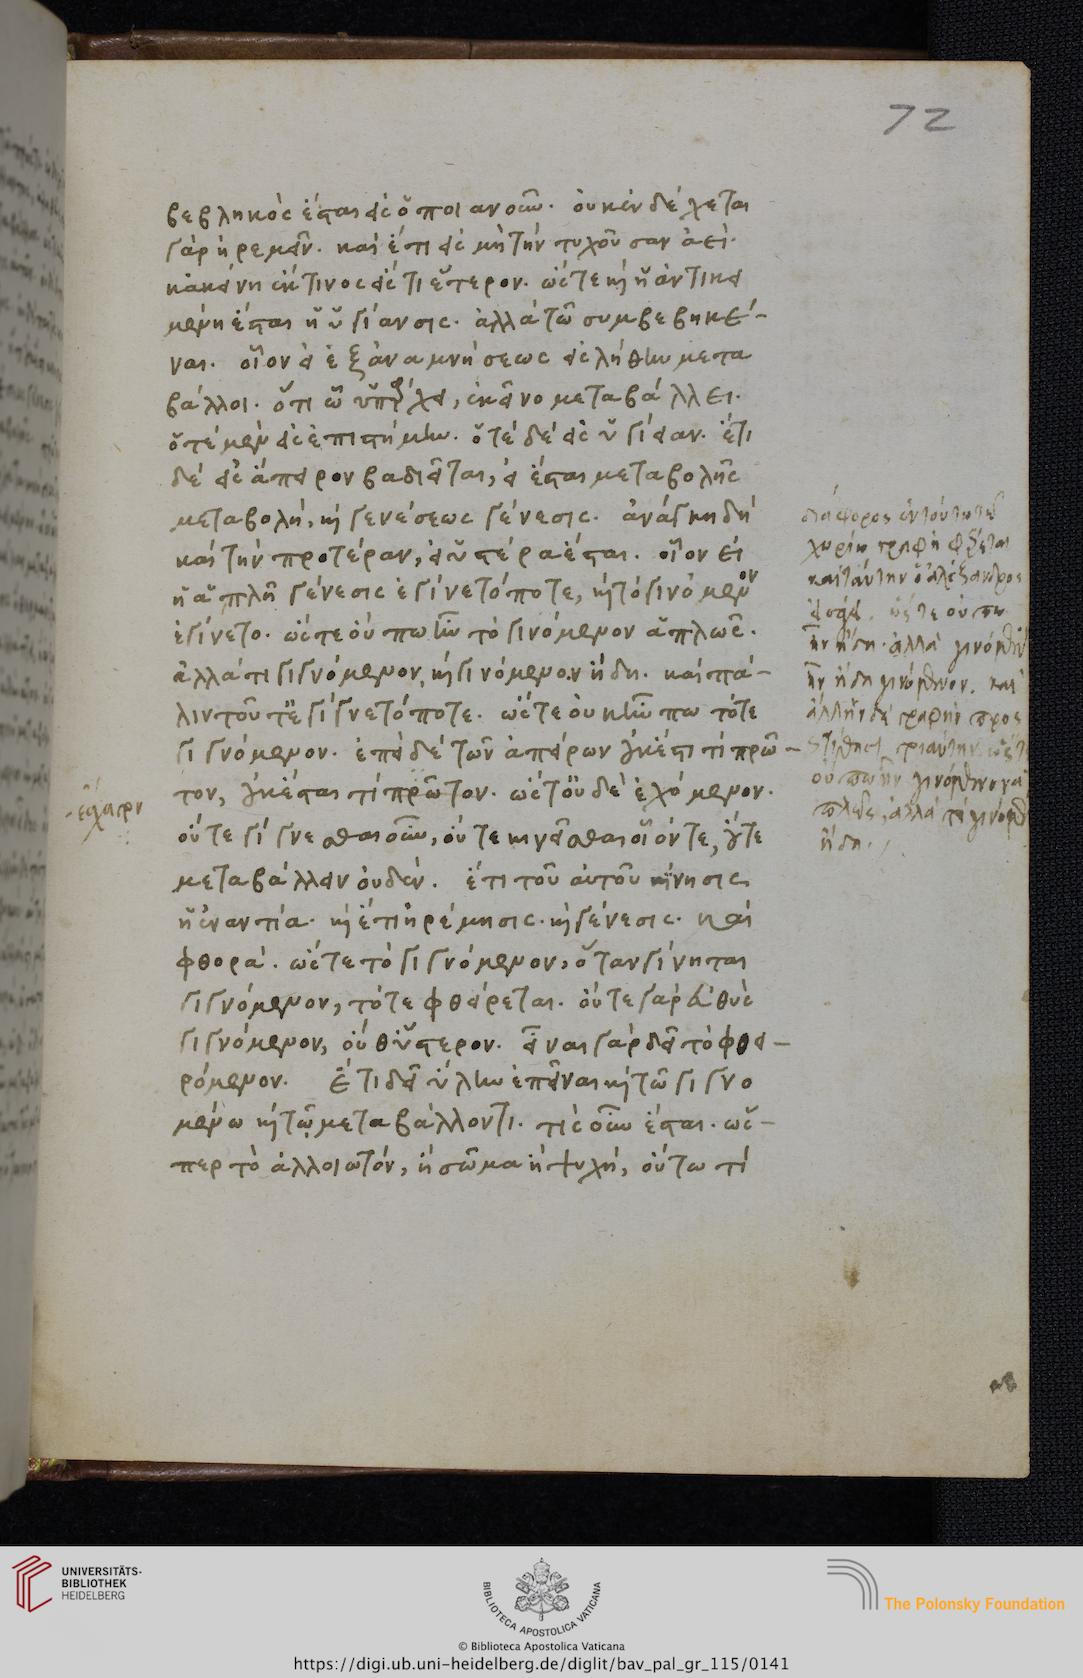 72
βεβληκὸς ἔσται εἰς ὅποι ἂν οὖν. οὐκ ἐνδέχεται
γὰρ ἠρεμεῖν. καὶ ἔτι εἰς μὴ τὴν τυχοῦσαν ἀεί.
κἀκείνη ἔκ τινος εἴς τι ἕτερον. ὥστε καὶ ἡ ἀντικει
μένη ἔσται ἡ ὑγίανσις. ἀλλὰ τῷ συμβεβηκέ-
ναι. οἷον εἰ ἐξ ἀναμνήσεως εἰς λήθην μετα
βάλλοι. ὅτι ᾧ ὑπάρχει, ἐκεῖνο μεταβάλλει.
ὁτὲ μὲν εἰς ἐπιστήμην. ὁτὲ δὲ εἰς ὑγίειαν. ἔτι
δὲ εἰς ἄπειρον βαδιεῖται, εἰ ἔσται μεταβολῆς
μεταβολή, καὶ γενέσεως γένεσις. ἀνάγκη δὴ
καὶ τὴν προτέραν, εἰ ὑστέρα ἔσται. οἷον εἰ
ἡ ἁπλῆ γένεσις ἐγίνετό ποτε, καὶ τὸ γινόμενον
ἐγίνετο. ὥστε οὔπω ἦν τὸ γινόμενον ἁπλῶς.
ἀλλά τι γιγνόμενον, καὶ γινόμενον ἤδη. καὶ πά-
λιν τοῦτ' ἐγίγνετό ποτε. ὥστε οὐκ ἦν πω τότε
γιγνόμενον. ἐπεὶ δὲ τῶν ἀπείρων οὐκ ἔστι τι πρῶ-
τον, οὐκ ἔσται τι πρῶτον. ὥστ' οὐδὲ ἐχόμενον.
οὔτε γίγνεσθαι οὖν, οὔτε κινεῖσθαι οἷόν τε, οὔτε
μεταβάλλειν οὐδέν. ἔτι τοῦ αὐτοῦ κίνησις
ἡ ἐναντία. καὶ ἔτι ἠρέμησις. καὶ γένεσις. καὶ
φθορά. ὥστε τὸ γιγνόμενον, ὅταν γίνηται
γιγνόμενον, τότε φθείρεται. οὔτε γὰρ εὐθὺς
γιγνόμενον, οὔθ' ὕστερον. εἶναι γὰρ δεῖ τὸ φθει-
ρόμενον. Ἔτι δεῖ ὕλην ὑπεῖναι καὶ τῷ γιγνο
μένῳ καὶ τῷ μεταβάλλοντι. τίς οὖν ἔσται. ὥσ-
περ τὸ ἀλλοιωτόν, ἢ σῶμα ἢ ψυχή, οὕτω τί
διάφορος
γραφὴ φέρεται
καὶ ταύτην ὁ ἀλέξανδρος
ὥστε οὔπω
ἦν ἤδη. ἀλλὰ
ἦν ἤδη γινόμενον. καὶ
ἄλλην δὲ γραφὴν προς
ἤδη.
UNIVERSITÄTS-
BIBLIOTHEK
HEIDELBERG
BIBLIOTECA APOSTOLICA VATICANA
The Polonsky Foundation
© Biblioteca Apostolica Vaticana
https://digi.ub.uni-heidelberg.de/diglit/bav_pal_gr_115/0141